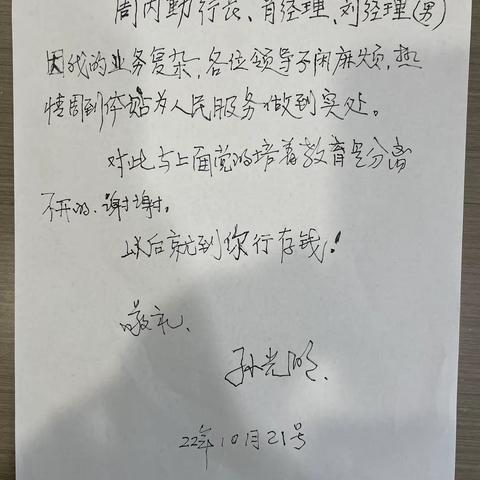 周内勤行长、肖经理、刘经理(男)
因我的业务复杂,各位领导不闲麻烦,热
情周到体贴为人民服务做到实处。
对此与上面党的培养教育是分离
不开的、谢谢。
以后就到你行存钱!
敬礼、
孙光明、
22年10月21号